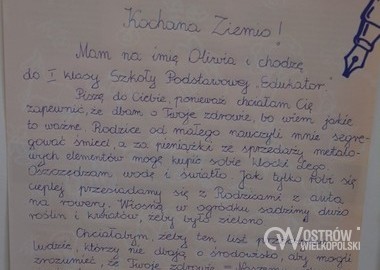 Kochana Ziemio!
Mam na imię Oliwia i chodzę
do I klasy Szkoły Podstawowej "Edukator"
Piszę do Ciebie, ponieważ chciałam Cię
zapewnić, że dbam o Twoje zdrowie, bo wiem jakie
to ważne. Rodzice od małego nauczyli mnie segre-
gować śmieci, a za pieniążki ze sprzedaży metalo-
wych elementów mogę kupić sobie klocki Lego.
Oszczędzam wodę i światło. Jak tylko robi się
cieplej przesiadamy się z Rodzicami z auta
na rowery. Wiosną w ogródku sadzimy dużo
roślin i kwiatów, żeby było zielono.
Chciałabym, żeby ten list
ludzie, którzy nie dbają o środowisko, aby mogli
zrozumieć, że Twoje zdrowie
WOSTRÓW
WIELKOPOLSKI